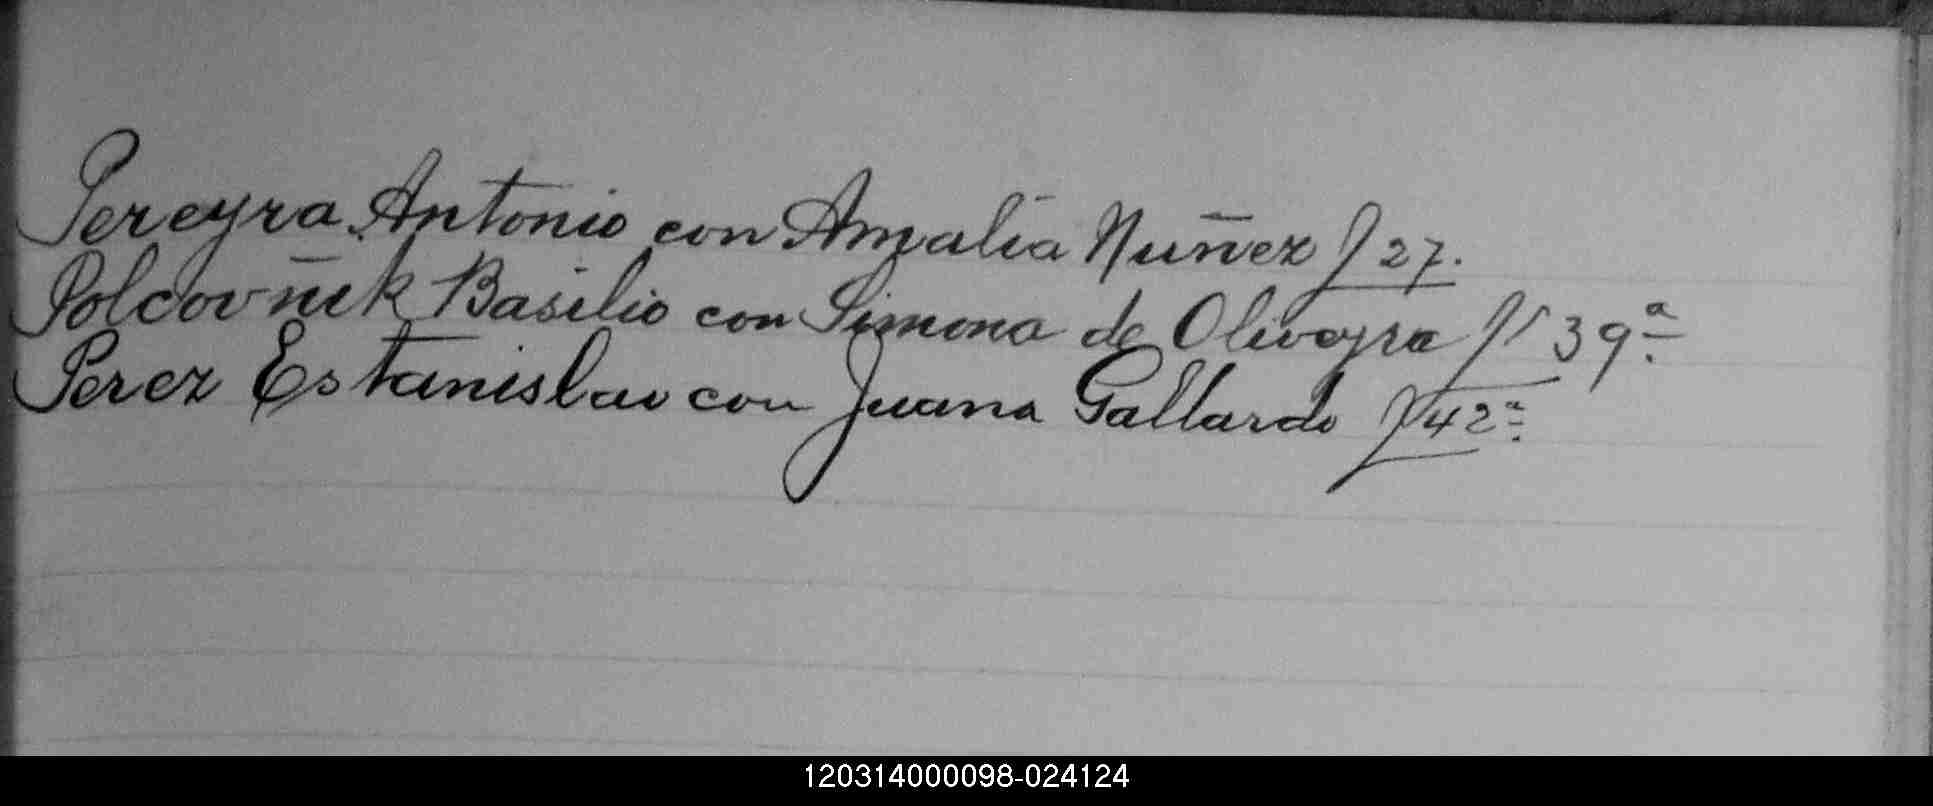 Pereyra Antonio con Amalia Nuñez f 27.
Polcovñik Basilio con Simona de Oliveyra f 39ª
Perez Estanislao con Juana Gallardo f 42ª
120314000098-024124